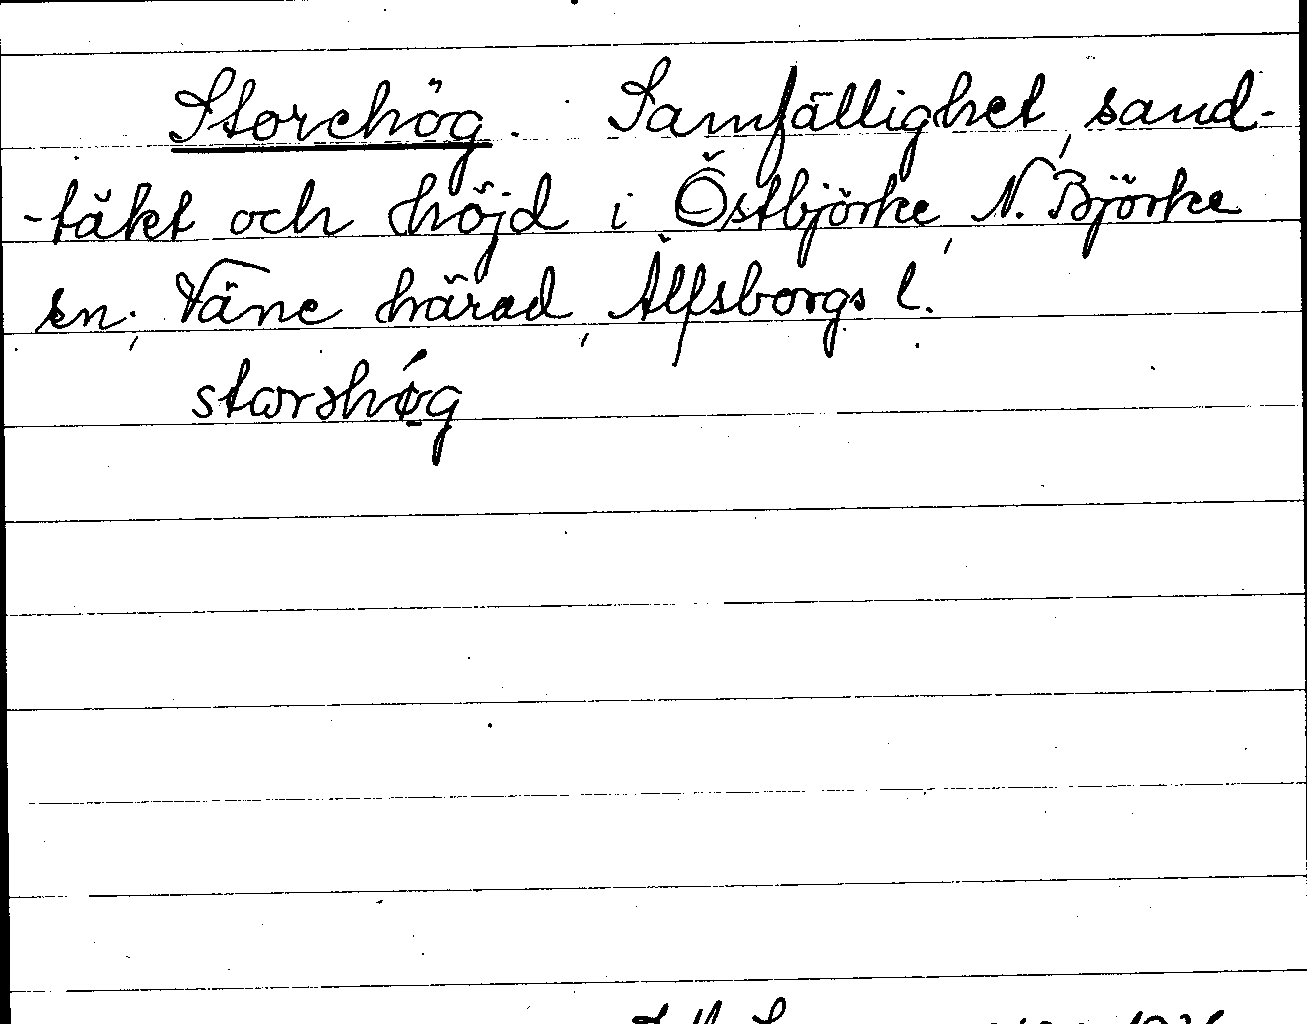 Storehög. Samfällighet, sand-
-täkt och höjd i Östbjörke, N. Björke
sn, Väne härad, Älfsborgs l.